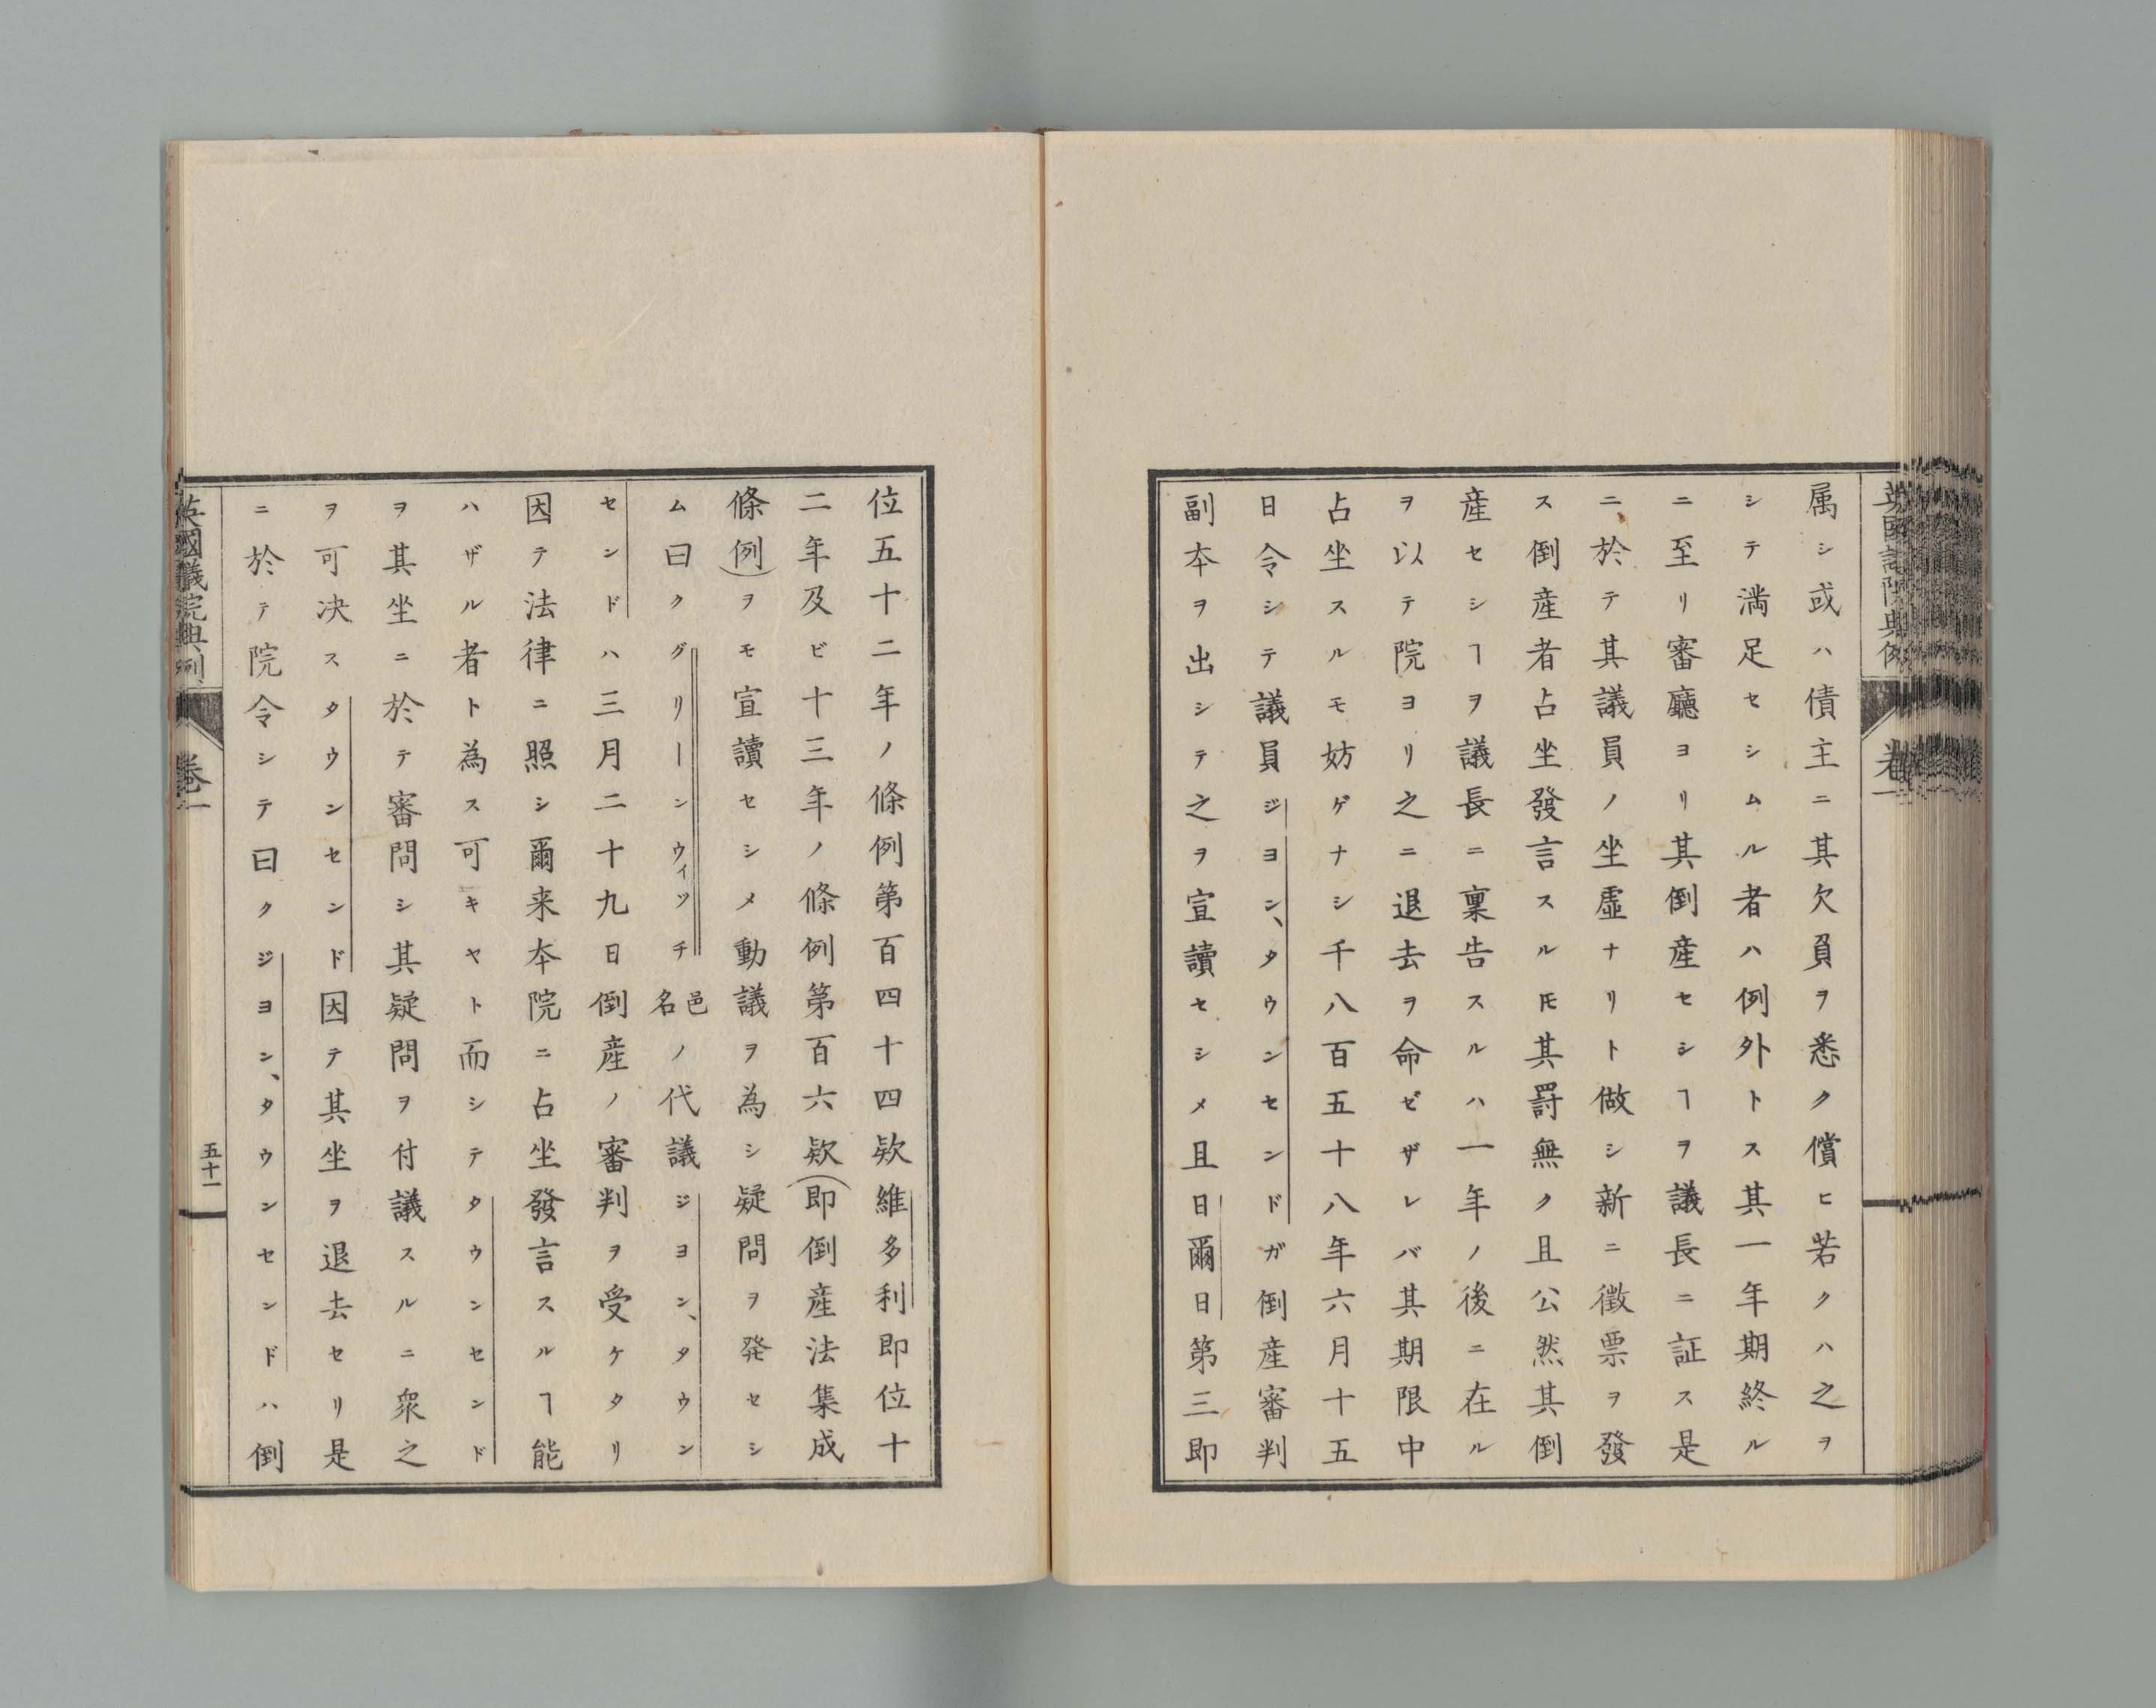 属シ或ハ債主ニ其欠負ヲ悉ク償ヒ若クハ之ヲ
シテ満足セシムル者ハ例外トス其一年期終ル
ニ至リ審廳ヨリ其倒産セシヿヲ議長ニ証ス是
ニ於テ其議員ノ坐虚ナリト做シ新ニ徴票ヲ發
ス倒産者占坐發言スルㇳモ其罸無ク且公然其倒
産セシヿヲ議長ニ稟告スルハ一年ノ後ニ在ル
ヲ以テ院ヨリ之ニ退去ヲ命ゼザレバ其期限中
占坐スルモ妨ゲナシ千八百五十八年六月十五
日令シテ議員ジヨン、タウンセンドガ倒産審判
副本ヲ出シテ之ヲ宣讀セシメ且日爾日第三即
位五十二年ノ條例第百四十四欵維多利即位十
二年及ビ十三年ノ條例第百六欵(即倒産法集成
條例)ヲモ宣讀セシメ動議ヲ為シ疑問ヲ発セシ
ム曰クグリーンウィッチ邑名ノ代議ジヨン、タウン
センドハ三月二十九日倒産ノ審判ヲ受ケタリ
因テ法律ニ照シ爾来本院ニ占坐發言スルヿ能
ハザル者ト為ス可キヤト而シテタウンセンド
ヲ其坐ニ於テ審問シ其疑問ヲ付議スルニ衆之
ヲ可决スタウンセンド因テ其坐ヲ退去セリ是
ニ於テ院令シテ曰クジヨン、タウンセンドハ倒
英國議院典例 卷一 五十一